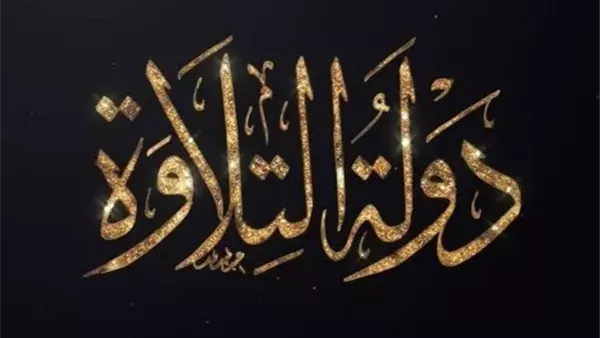 دَوْلَةُ التِّلَاوَةِ